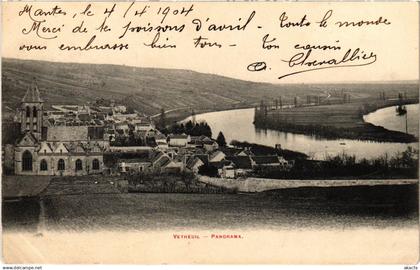 Mantes, le 4/4 1904
Merci de tes poissons d'avril - Toute le monde
vous embrasse bien tous - Ton cousin
A. Chevallier
VETHEUIL — PANORAMA.
akpool.de